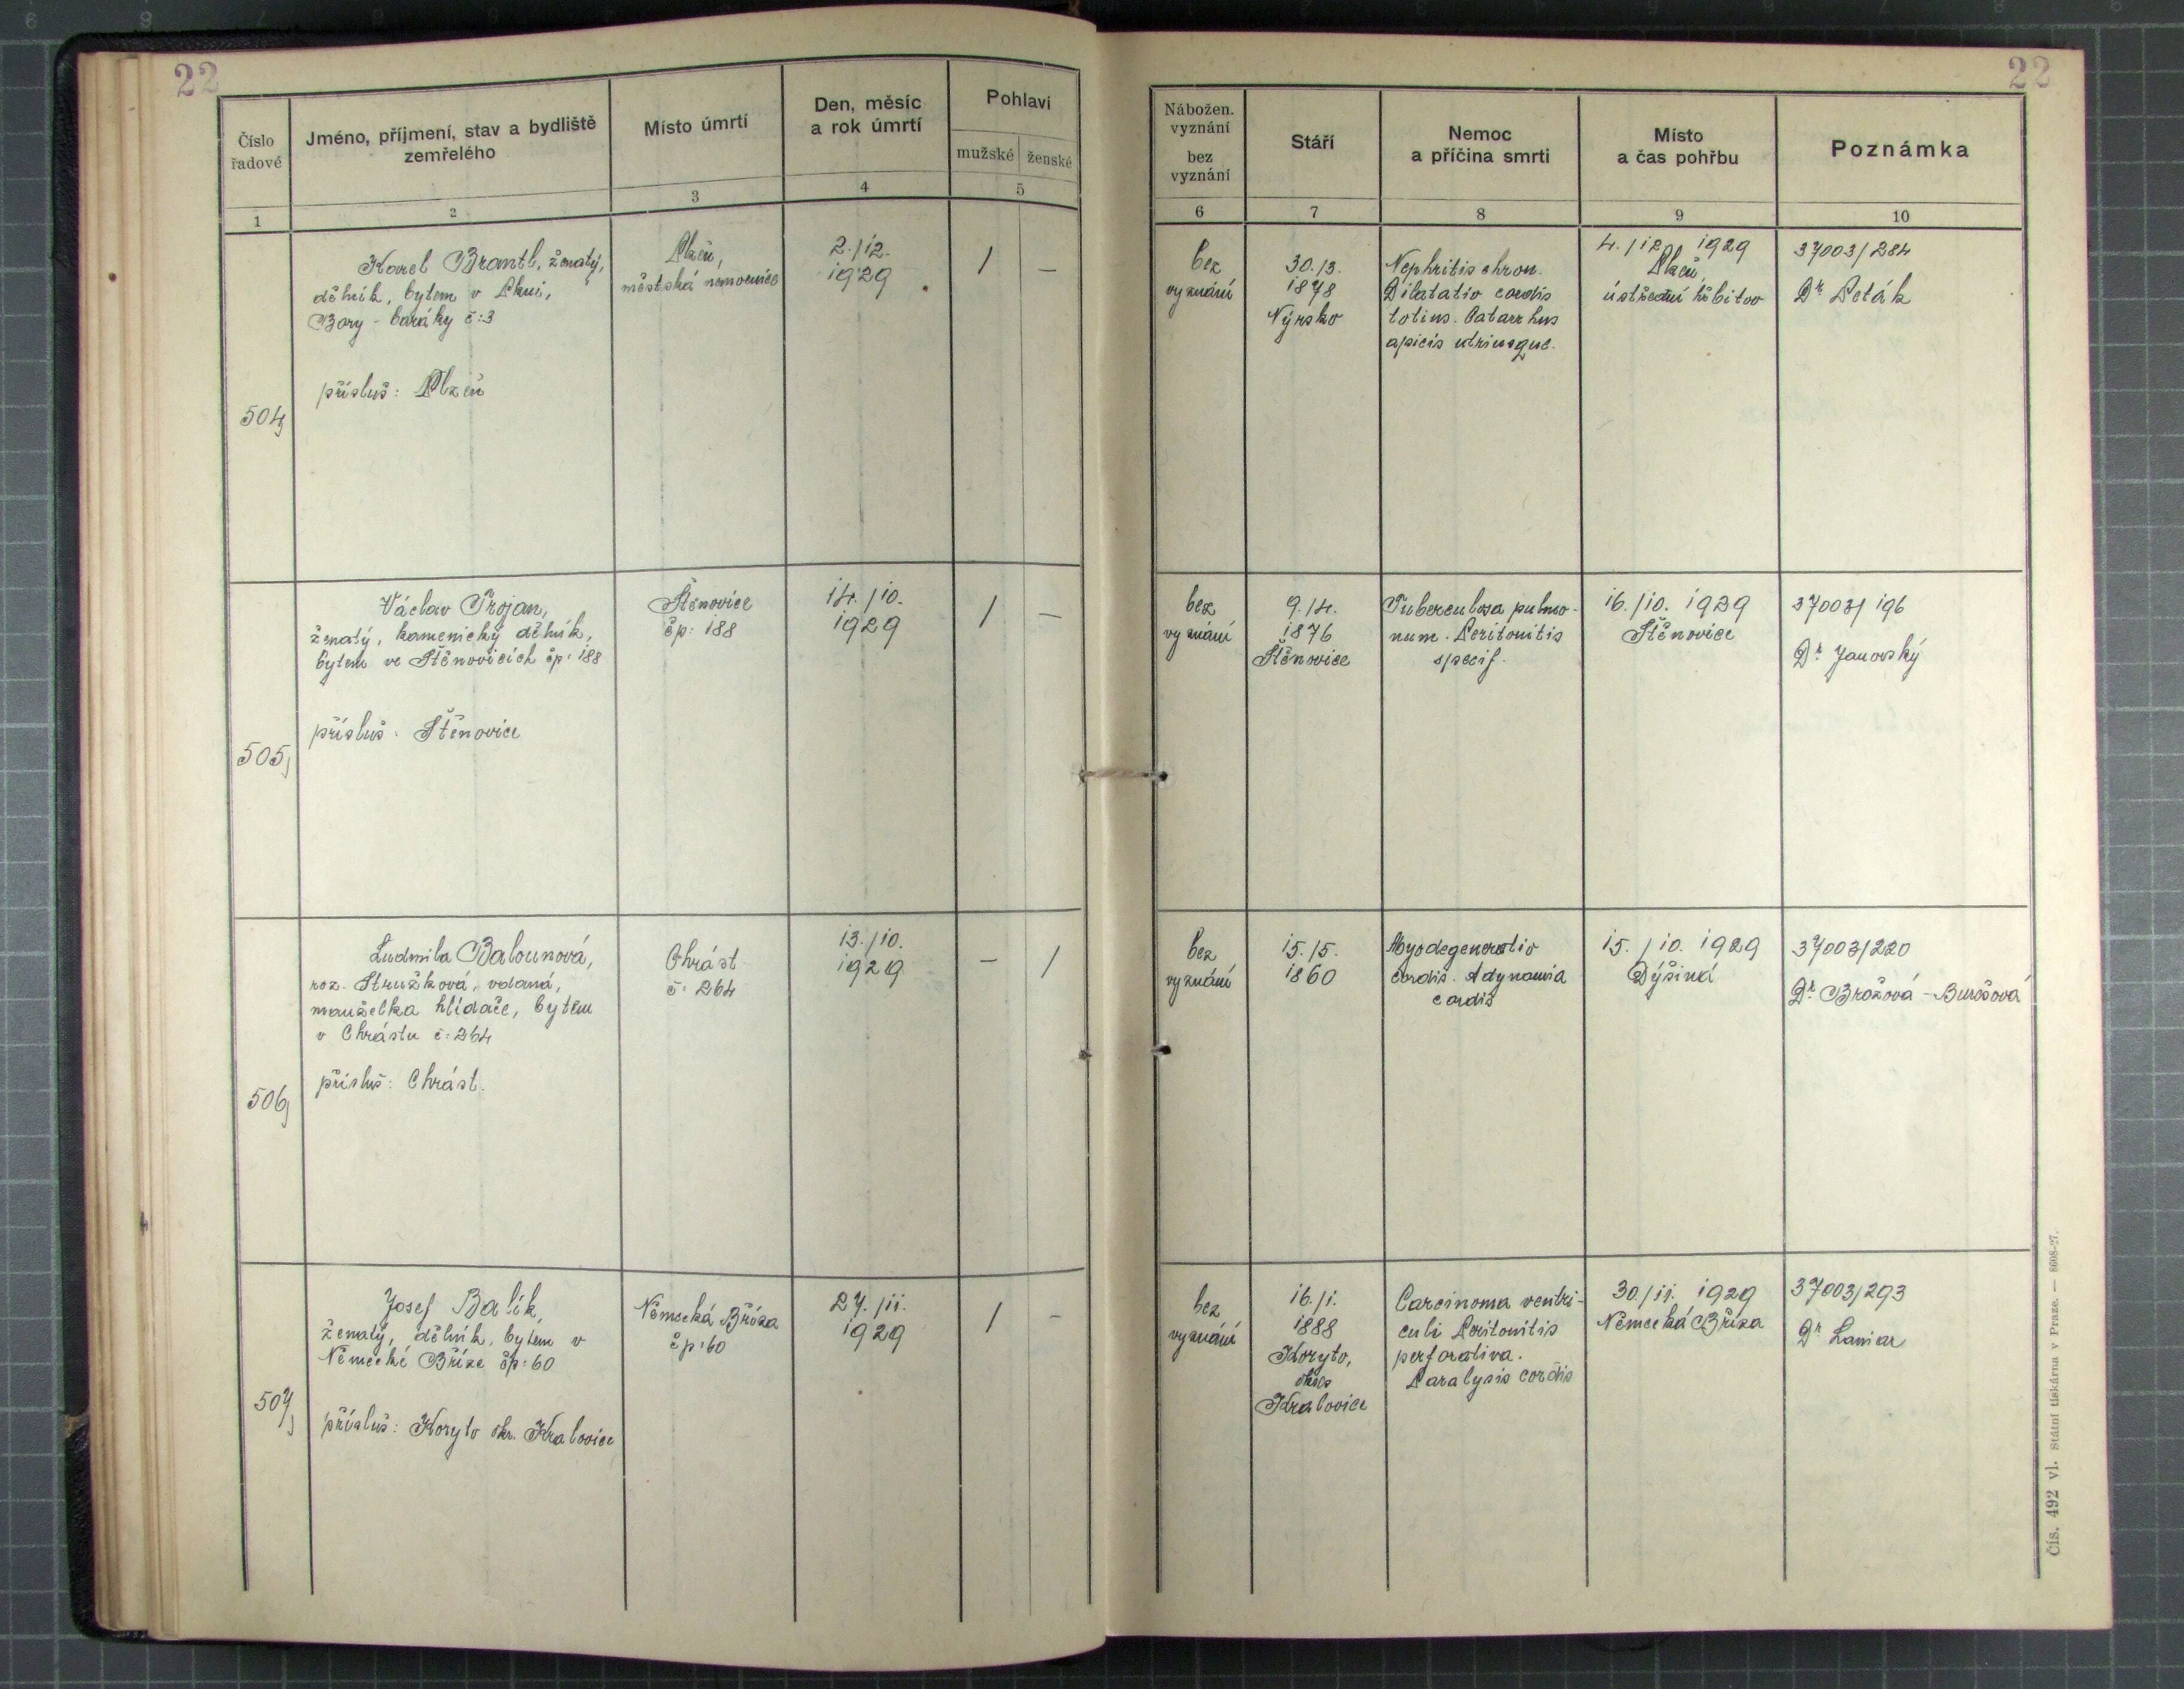 22
22
Číslo
řadové
Jméno, příjmení, stav a bydliště
zemřelého
Místo úmrtí
Den, měsíc
a rok úmrtí
Pohlaví
mužské
ženské
1
2
3
4
5
Nábožen.
vyznání
bez
vyznání
Stáří
Nemoc
a příčina smrti
Místo
a čas pohřbu
Poznámka
6
7
8
9
10
504
Karel Brantl, ženatý,
dělník, bytem v Plzni,
Bory - baráky č: 3
přísluš: Plzeň
Plzeň,
městská nemocnice
2./12.
1929
/
—
bez
vyznání
30./3.
1878
Nýrsko
Nephritis chron.
Dilatatio cordis
totius. Catarrhus
apicis utriusque.
4./12. 1929
Plzeň,
ústřední hřbitov
37003/284
Dr Peták
505
Václav Trojan,
ženatý, kamenický dělník,
bytem ve Štěnovicích čp: 188
přísluš: Štěnovice
Štěnovice
čp: 188
14./10.
1929
/
—
bez
vyznání
9./4.
1876
Štěnovice
Tuberculosa pulmo-
num. Peritonitis
specif.
16./10. 1929
Štěnovice
37003/196
Dr Janovský
506
Ludmila Balounová,
roz. Stružková, vdaná,
manželka hlídače, bytem
v Chrástu č: 264
přísluš: Chrást.
Chrást
č: 264
13./10.
1929
—
/
bez
vyznání
15./5.
1860
Myodegeneratio
cordis. Adynamia
cordis
15./10. 1929
Dýšiná
37003/220
Dr Brožová - Burešová
507
Josef Balík,
ženatý, dělník, bytem v
Německé Bříze čp: 60
přísluš: Koryto okr. Kralovice
Německá Bříza
čp: 60
27./11.
1929
/
—
bez
vyznání
16./1.
1888
Koryto,
okres
Kralovice
Carcinoma ventri-
culi Peritonitis
perforativa.
Paralysis cordis
30./11. 1929
Německá Bříza
37003/293
Dr Laniar
Čís. 492 vl. Státní tiskárna v Praze. — 8608-27.